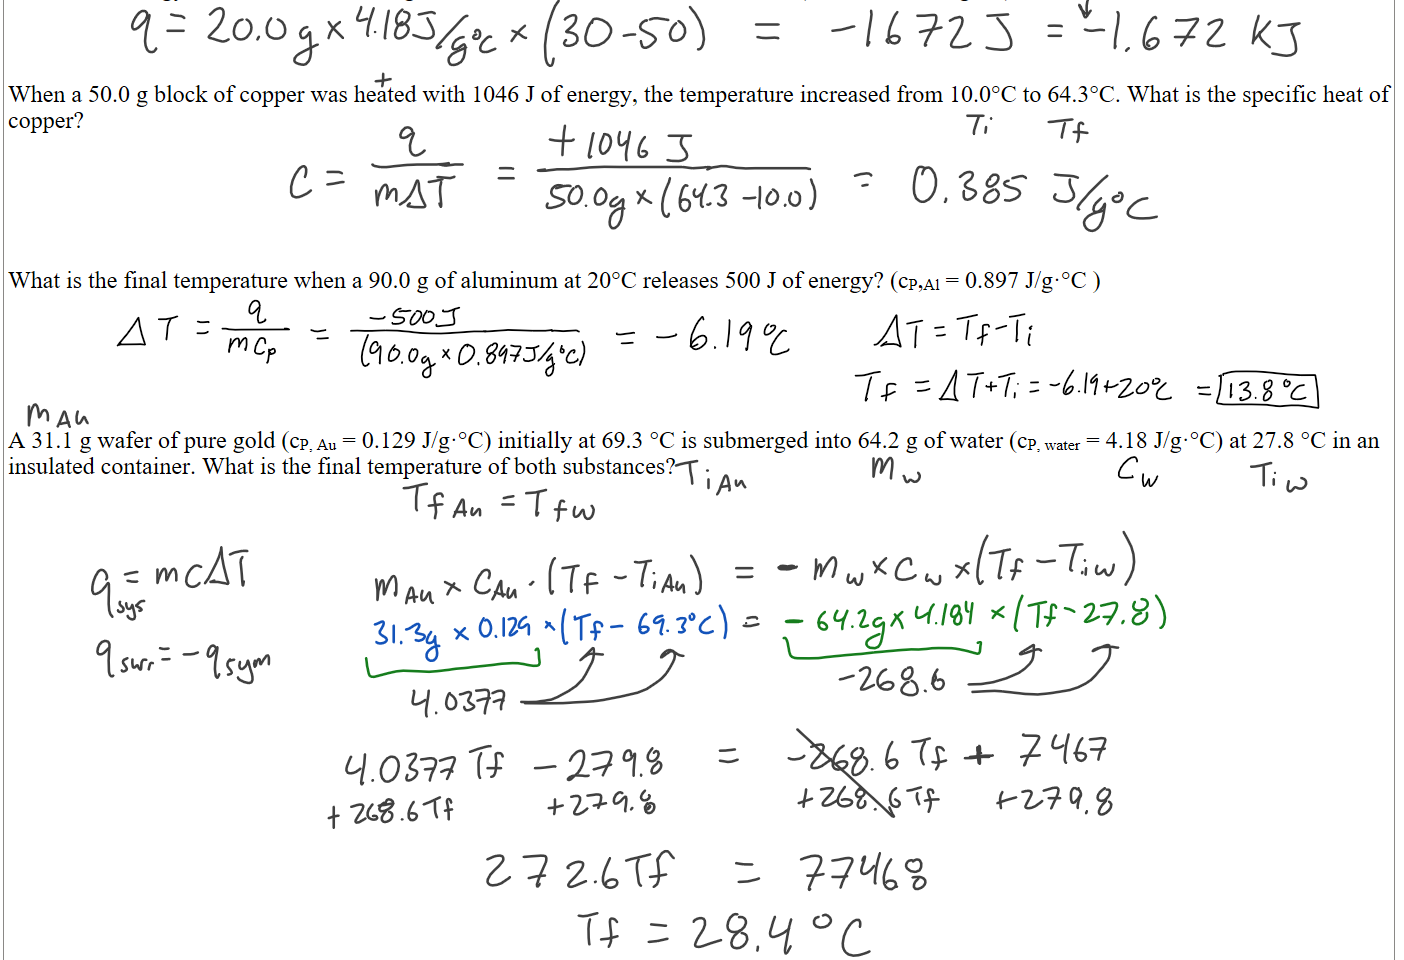 q = 20.0 g x 4.18 J/g°C x (30-50) = -1672 J = -1.672 KJ
+
When a 50.0 g block of copper was heated with 1046 J of energy, the temperature increased from 10.0°C to 64.3°C. What is the specific heat of
copper?
Ti Tf
C = q / mΔT = +1046 J / 50.0g x (64.3 -10.0) = 0.385 J/g°C
What is the final temperature when a 90.0 g of aluminum at 20°C releases 500 J of energy? (cP,Al = 0.897 J/g·°C )
ΔT = q / mCp = -500J / (90.0g x 0.897J/g°C) = -6.19°C ΔT = Tf-Ti
Tf = ΔT+Ti = -6.19+20°C = 13.8°C
mAu
A 31.1 g wafer of pure gold (cP, Au = 0.129 J/g·°C) initially at 69.3 °C is submerged into 64.2 g of water (cP, water = 4.18 J/g·°C) at 27.8 °C in an
insulated container. What is the final temperature of both substances? TiAu mw Cw Tiw
TfAu = Tfw
qsys = mCΔT mAu x CAu · (Tf - TiAu) = - mw x Cw x (Tf - Tiw)
31.3g x 0.129 x (Tf - 69.3°C) = - 64.2g x 4.184 x (Tf - 27.8)
qsurr = -qsym
4.0377 -268.6
4.0377 Tf - 279.8 = -268.6 Tf + 7467
+ 268.6 Tf +279.8 +268.6 Tf +279.8
272.6 Tf = 77468
Tf = 28.4 °C